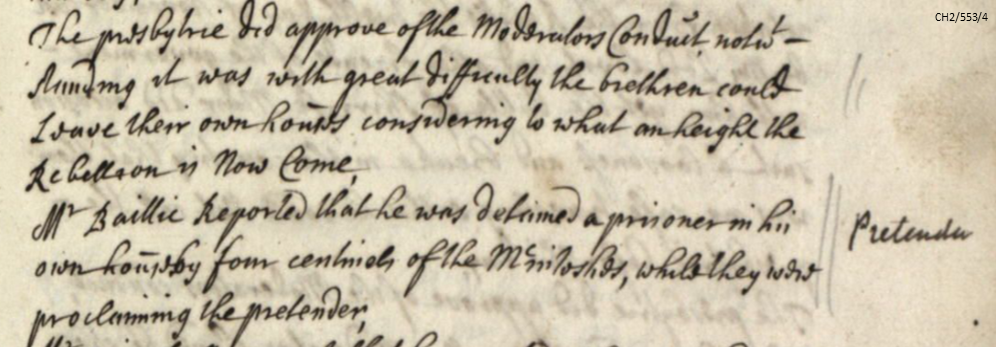 CH2/553/4
The presbytrie did approve of the Moderators Conduct notwt-
standing it was with great difficulty the brethren could
Leave their own houses considering to what an height the
Rebellion is Now Come,
Mr Baillie Reported that he was detained a prisoner in his
own house by four centinels of the McIntoshes, while they were
proclaiming the pretender,
Pretender